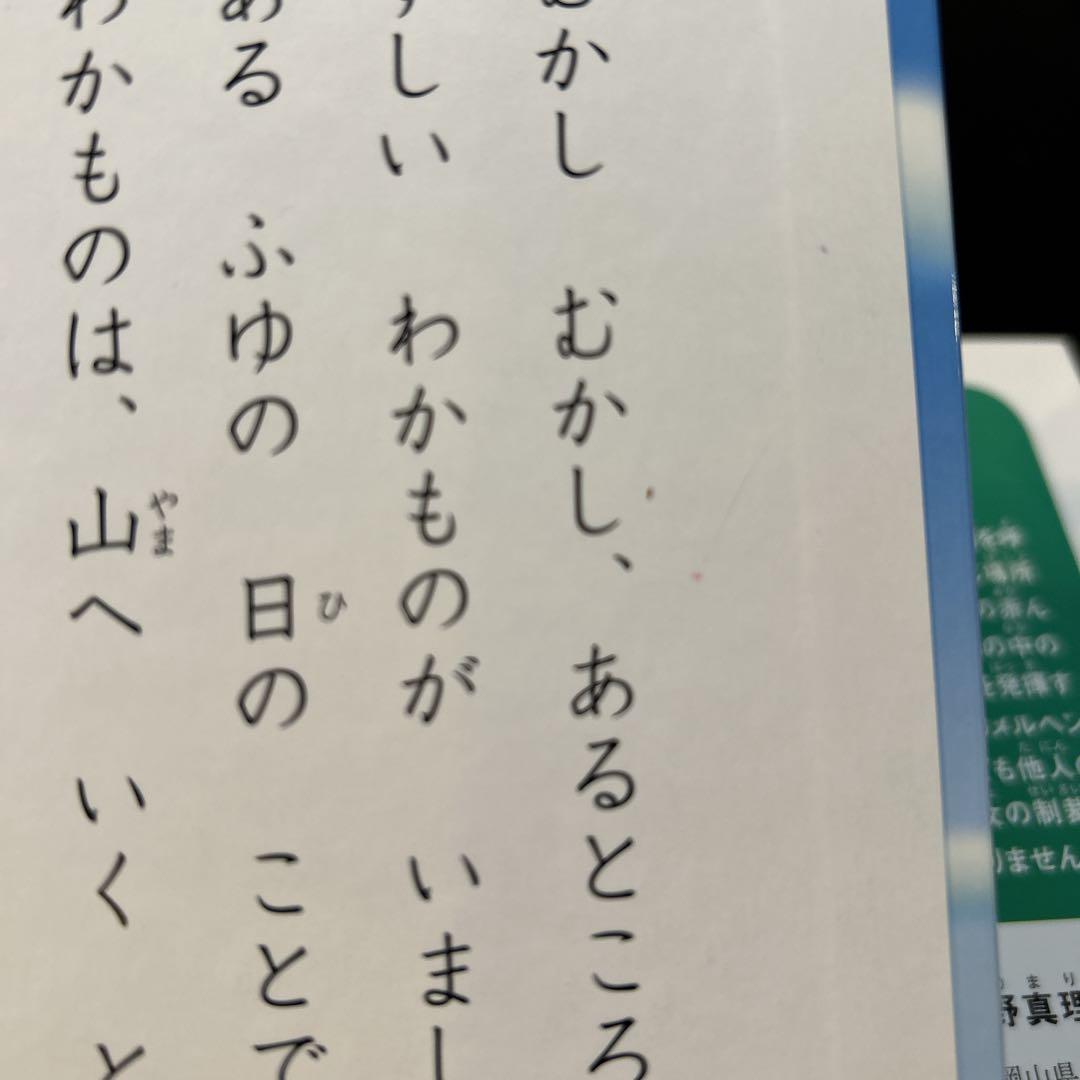 かし むかし、 あるところ
しい わかものが いまし
ある ふゆの 日の ことで
わかものは、 山へ いく と
ひ
やま
の中の
発揮す
メルヘン
も他人の
たにん
の制裁
りません
まり
野真理
岡山県